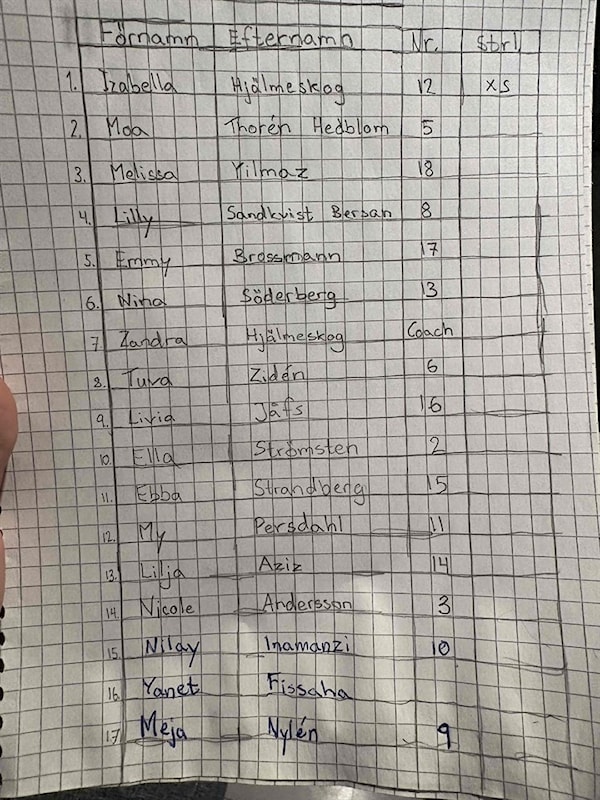 Förnamn Efternamn Nr. Strl.
1. Izabella Hjälmeskog 12 XS
2. Moa Thorén Hedblom 5
3. Melissa Yilmaz 18
4. Lilly Sandkvist Bersan 8
5. Emmy Brossmann 17
6. Nina Söderberg 13
7 Zandra Hjälmeskog Coach
8. Tuva Zidén 6
9. Livia Jäfs 16
10. Ella Strömsten 2
11. Ebba Strandberg 15
12. My Persdahl 11
13. Lilja Aziz 14
14. Nicole Andersson 3
15. Nilay Inamanzi 10
16. Yanet Fissaha
17. Meja Nylén 9